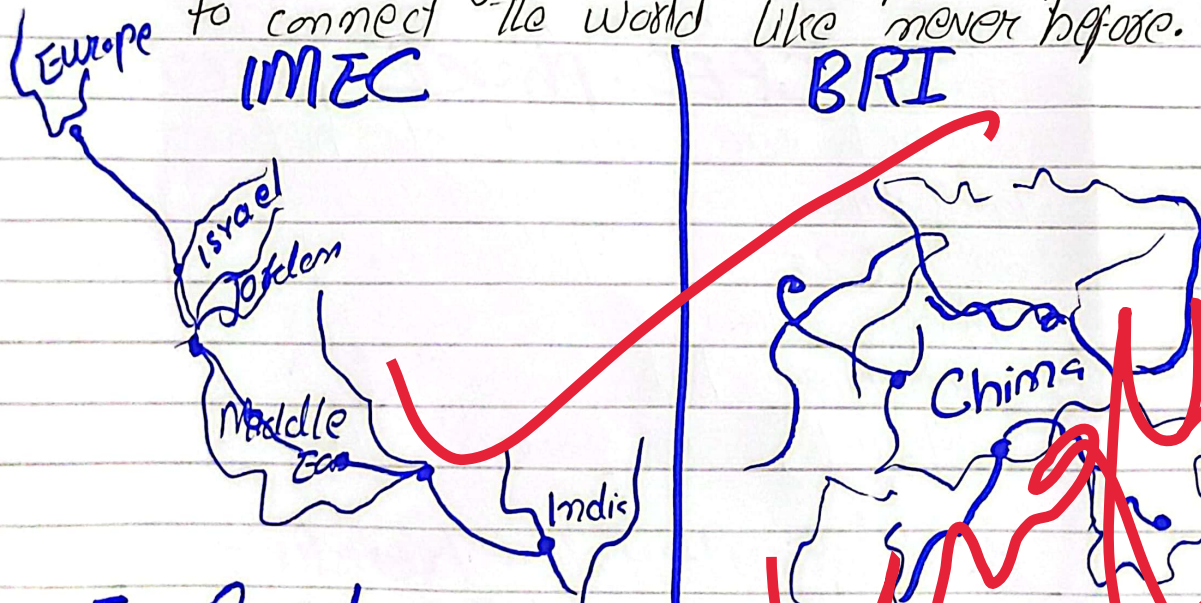 to connect the world like never before.
Europe
IMEC
BRI
Israel
Jordan
Middle
East
India
China